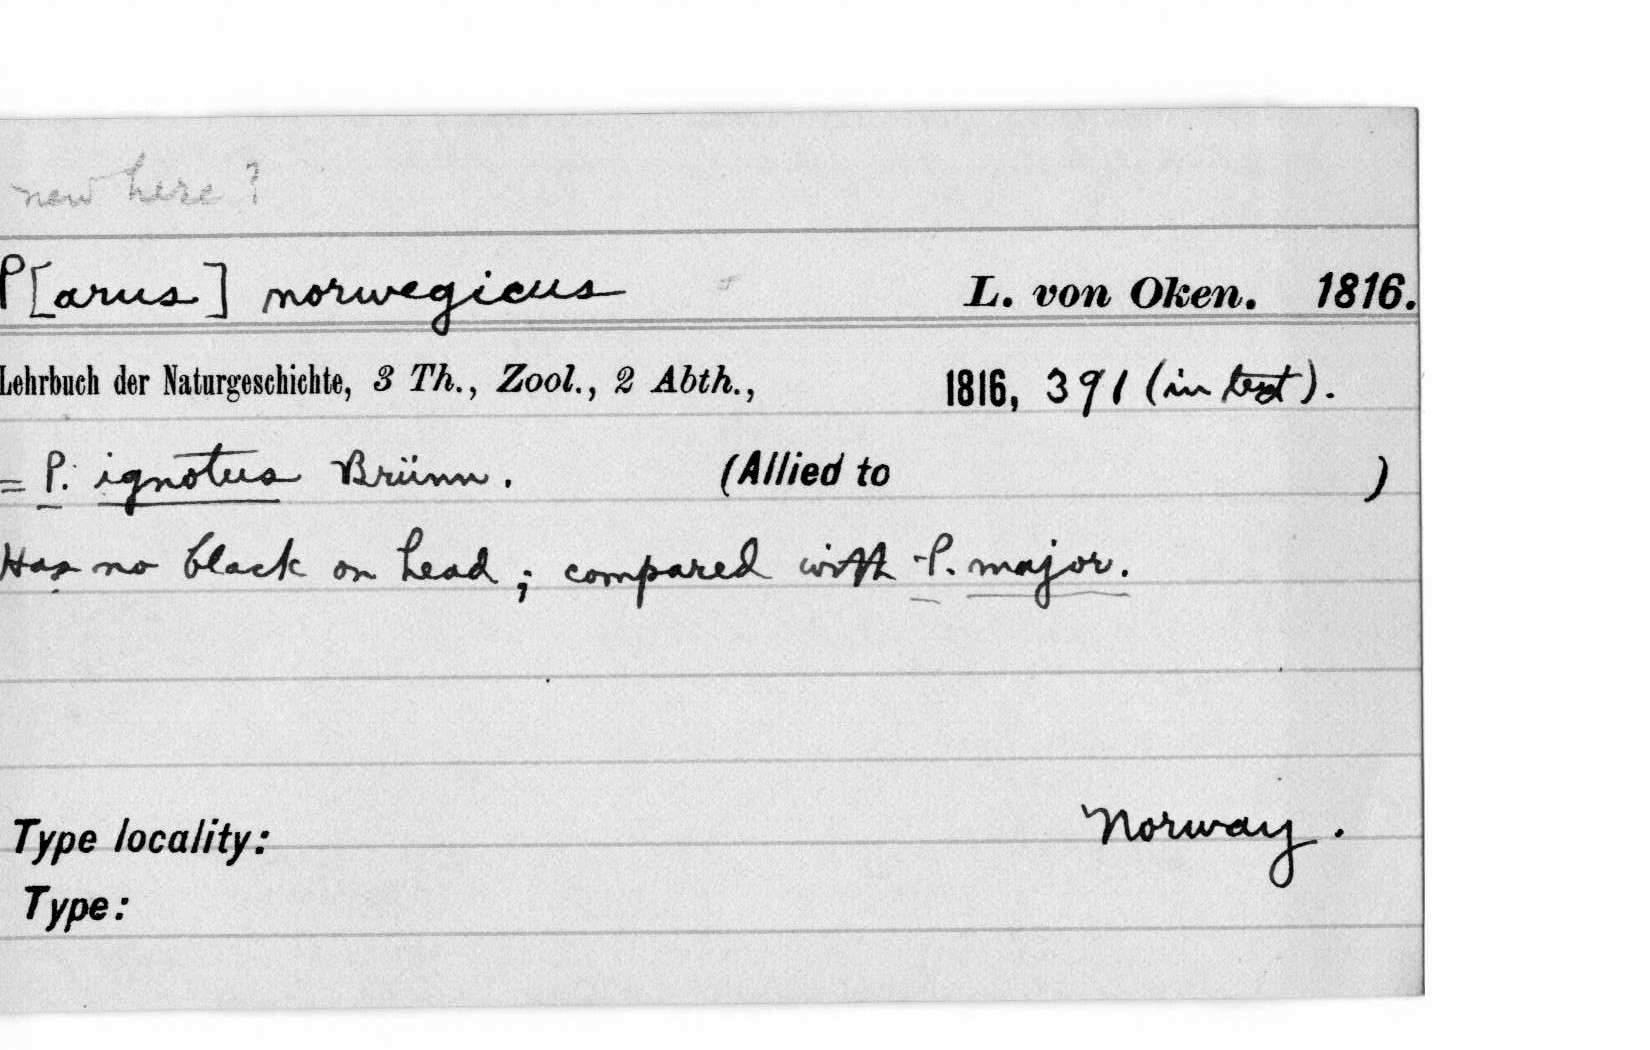 new here?
P[arus] norwegicus L. von Oken. 1816.
Lehrbuch der Naturgeschichte, 3 Th., Zool., 2 Abth., 1816, 391 (in text).
= P. ignotus Brünn. (Allied to )
Has no black on head; compared with P. major.
Type locality: Norway.
Type: